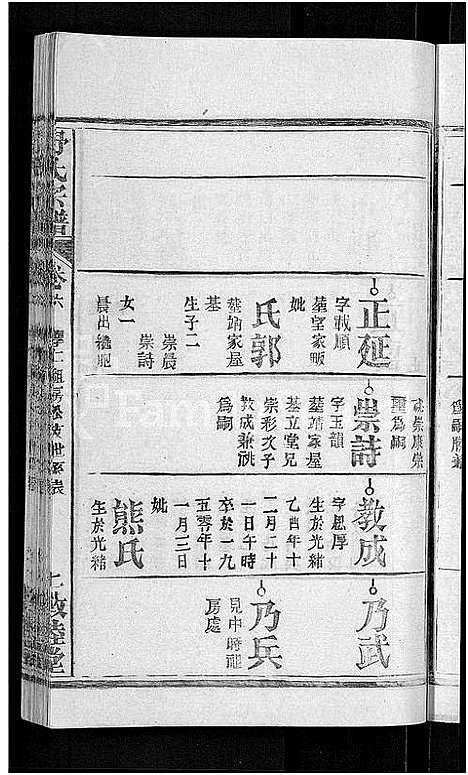 正延
字載順
塟望家畈
妣
郭氏
塟靖家屋
基
生子二
崇晨
崇詩
女一
晨出繼
崇詩
字玉韻
塟靖家屋
基立堂兄
崇彩次子
教成兼祧
爲嗣
教成
字思厚
生於光緒
乙酉年十
二月二十
一日午時
卒於一九
五零年十
一月三日
妣
熊氏
生於光緒
乃武
乃兵
見中時祖
房處
氏宗譜
卷六
敦睦堂